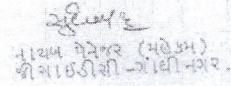 નાયબ મેનેજર (મહેકમ)
જીઆઈડીસી-ગાંધીનગર.